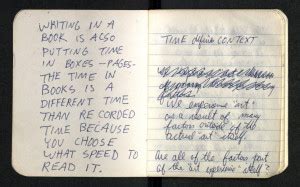 WRITING IN A
BOOK IS ALSO
PUTTING TIME
IN BOXES -PAGES-
THE TIME IN
BOOKS IS A
DIFFERENT TIME
THAN RECORDED
TIME BECAUSE
YOU CHOOSE
WHAT SPEED TO
READ IT.
TIME defines CONTEXT
We experience "art"
as a result of many
factors outside of the
actual art itself
Are all of the factors part
of the art experience itself?